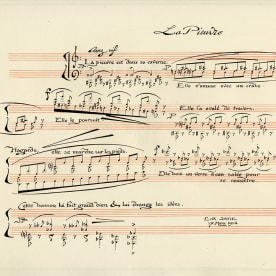 La Pieuvre
Assez vif
La pieuvre est dans sa caverne.
Elle s'amuse avec un crabe
Elle le poursuit.
Elle l'a avalé de travers.
Hagarde, elle se marche sur les pieds.
Elle boit un verre d'eau salée pour
se remettre
Cette boisson lui fait grand bien & lui change les idées.
ERIK SATIE
17 Mars 1914